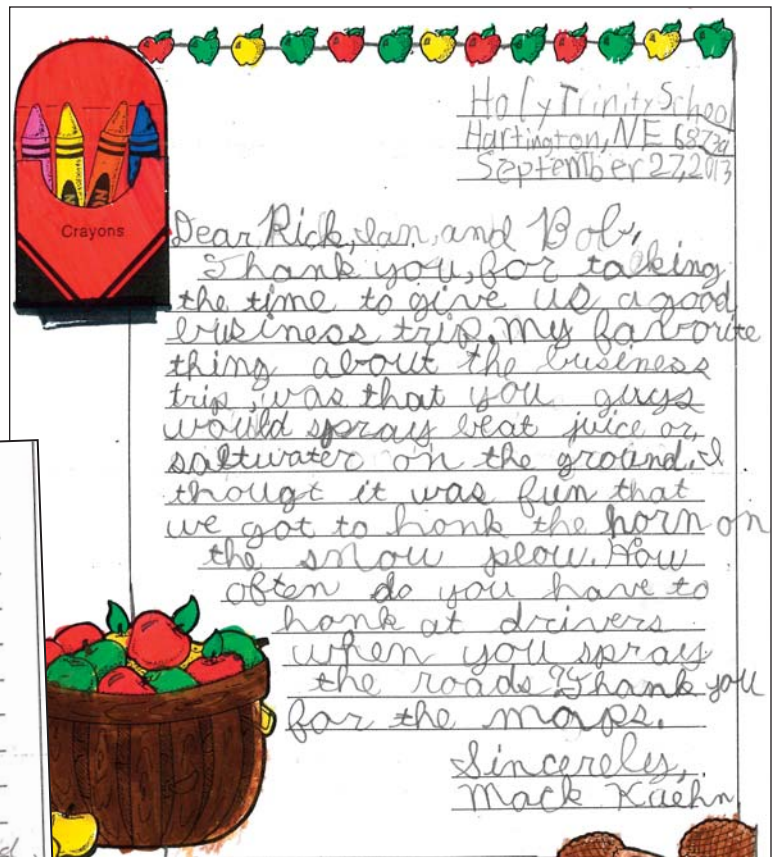 Holy Trinity School
Hartington, NE 68739
September 27, 2013
Crayons
Dear Rick, Ian, and Bob,
Thank you, for talking
the time to give us a good
business trip. My favorite
thing about the business
trip, was that you guys
would spray beat juice or
saltwater on the ground. I
thougt it was fun that
we got to honk the horn on
the snow plow. How
often do you have to
honk at drivers
when you spray
the roads? Thank you
for the maps.
Sincereley,
Mack Kuehn